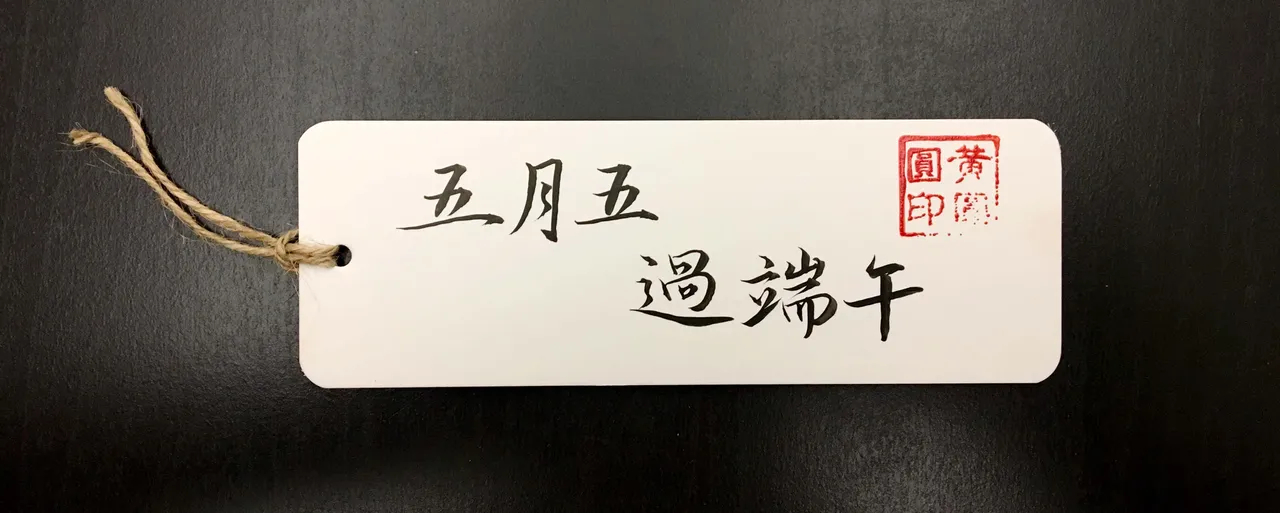 五月五
過端午
黃
圓印